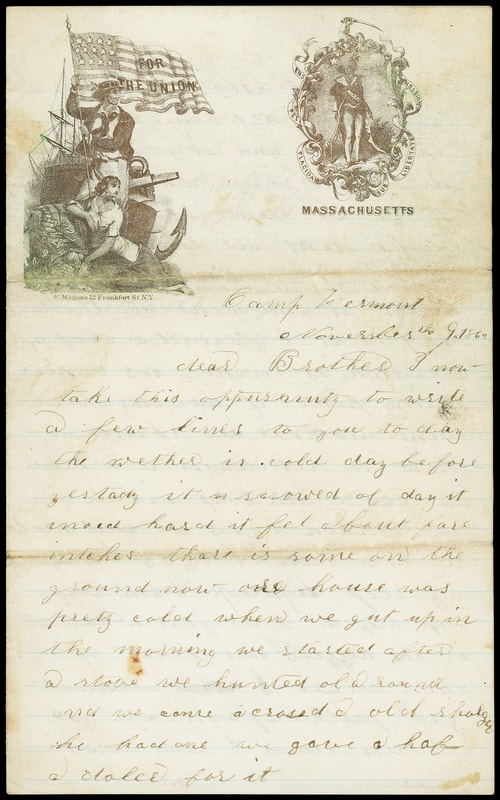 FOR
THE UNION
MASSACHUSETTS
Magnus 12 Frankfort St. N.Y.
Camp Vermont
November th 9 186
dear Brother I now
take this oppurainty to write
a few lines to you to day
the wether is cold day before
yestady it snowed of day it
snoed hard it fel about fore
intches thare is some on the
ground now our house was
prety cold when we gut up in
the morning we started after
a stove we hunted ol a round
and we come acrosed a old
he had one we gave a haf
a doler for it